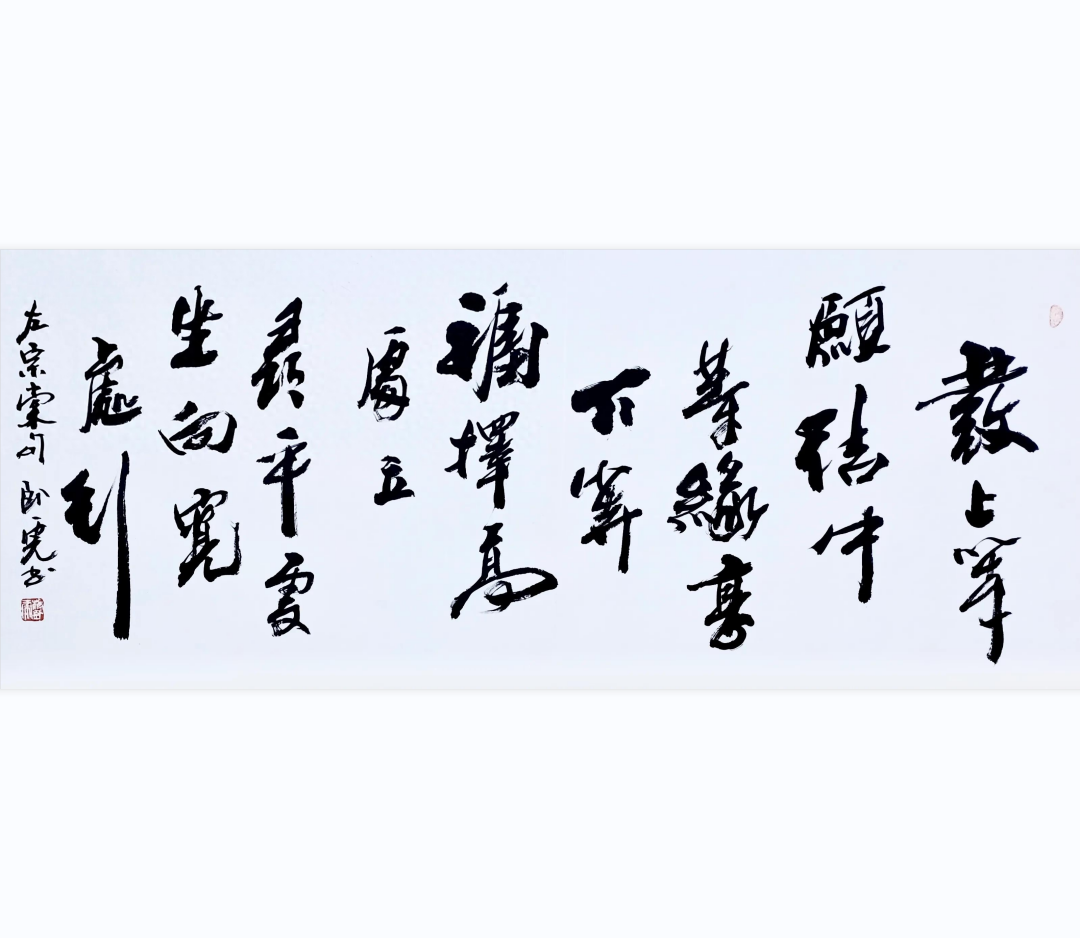 發上等
願結中
等緣享
下等
福擇高
處立
尋平處
坐向寬
處行
左宗棠句 卧 书